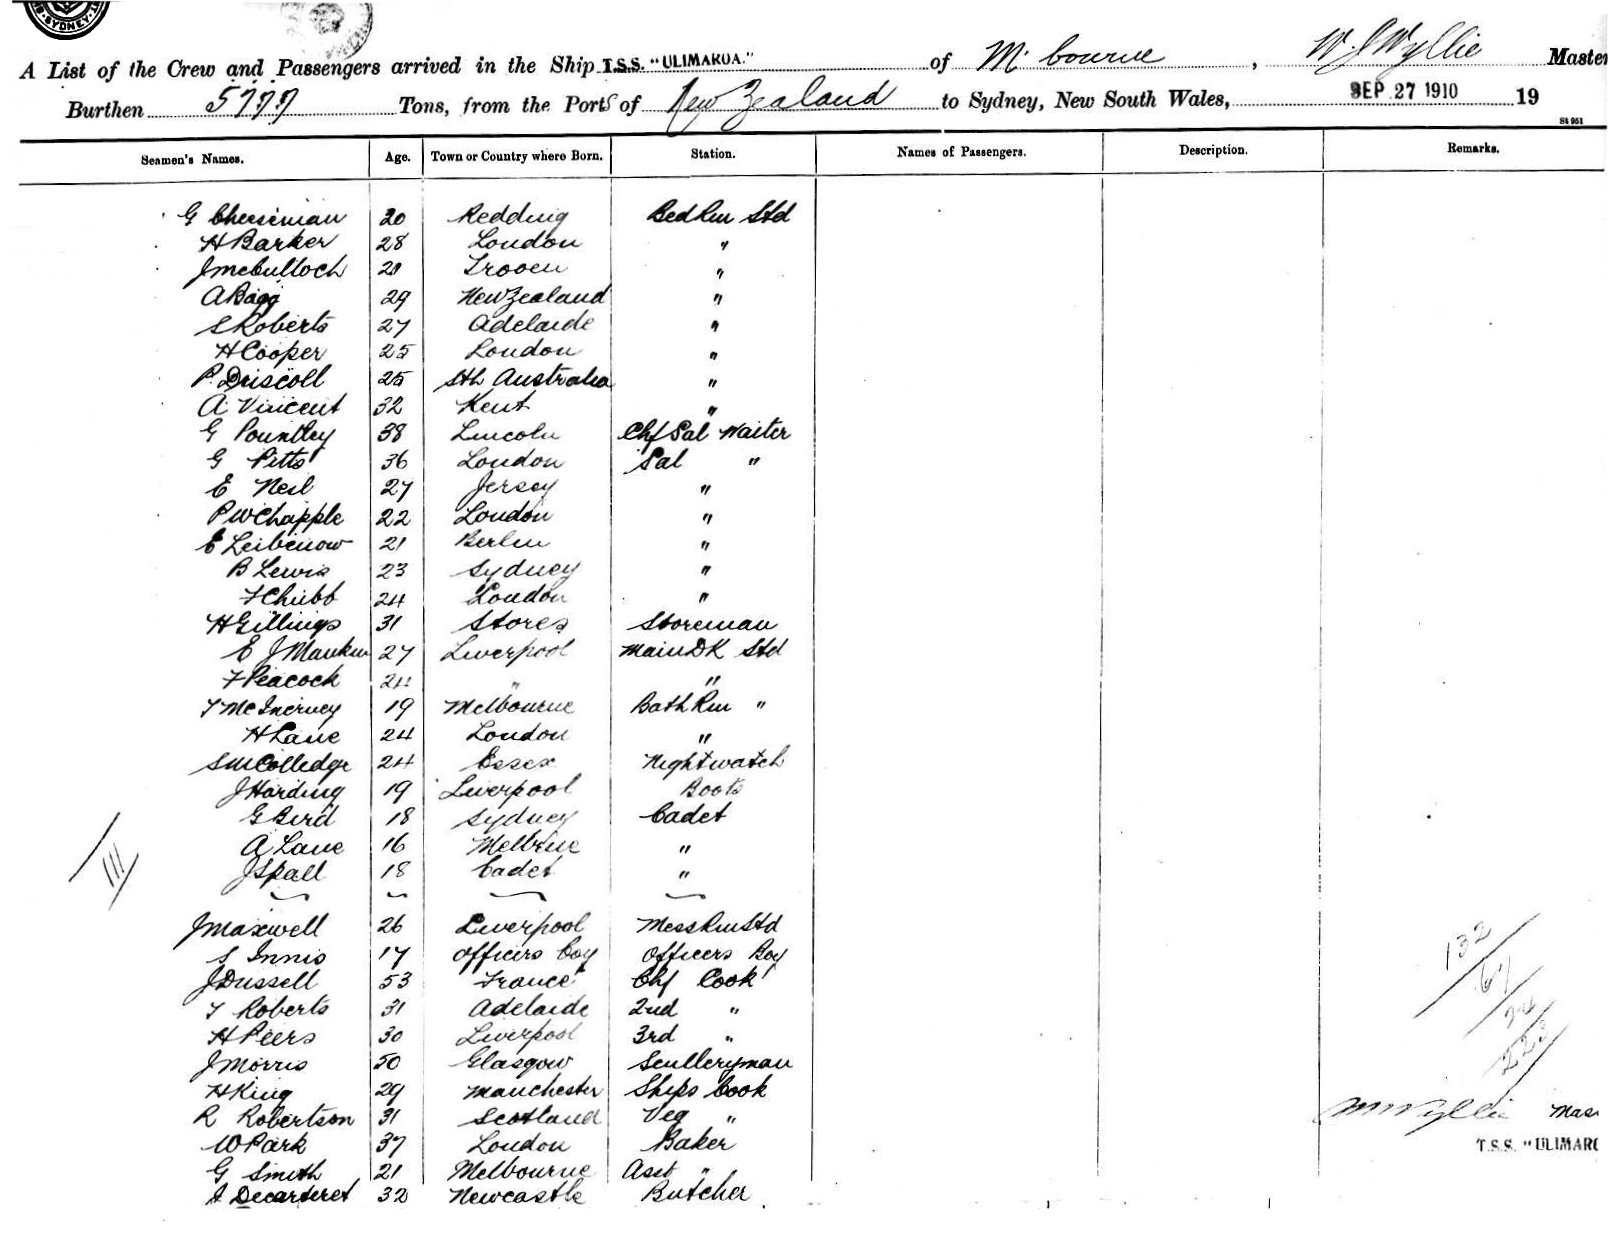 SYDNEY
A List of the Crew and Passengers arrived in the Ship T.S.S. "ULIMAROA." of M'bourne, W. J Wyllie Master
Burthen 5777 Tons, from the Ports of New Zealand to Sydney, New South Wales, SEP 27 1910 19
St 951
Seamen's Names. Age. Town or Country where Born. Station. Names of Passengers. Description. Remarks.
G Cheesman 20 Redding Bed Rm Std
H Barker 28 London "
J McCulloch 20 Trooen "
A Bagg 29 New Zealand "
S Roberts 27 Adelaide "
H Cooper 25 London "
P. Driscoll 25 Sth Australia "
A Vincent 32 Kent "
G Pountley 38 Lincoln Chf Sal Waiter
G Pitts 36 London Sal "
E Neil 27 Jersey "
P W Chapple 22 London "
E Leibenow 21 Berlin "
B Lewis 23 Sydney "
F Chubb 24 London "
H Gillings 31 Stores Storeman
E J Mankin 27 Liverpool Main DK Std
F Peacock 24 " "
T McInerney 19 Melbourne Bath Rm "
H Lane 24 London "
S W Colledge 24 Essex Nightwatch
J Harding 19 Liverpool Boots
G Bird 18 Sydney Cadet
A Lane 16 Melbrne "
J Spall 18 Cadet "
111
J Maxwell 26 Liverpool Mess Rm Std
S Innis 17 Officers Boy Officers Boy
J Dussell 53 France Chf Cook
T Roberts 31 Adelaide 2nd "
H Peers 30 Liverpool 3rd "
J Morris 50 Glasgow Sculleryman
H King 29 Manchester Ships Cook
R Robertson 31 Scotland Veg "
W Park 37 London Baker
G Smith 21 Melbourne Asst "
S Decarteret 32 Newcastle Butcher
132
67
24
223
W J Wyllie Mas
T.S.S. "ULIMARO